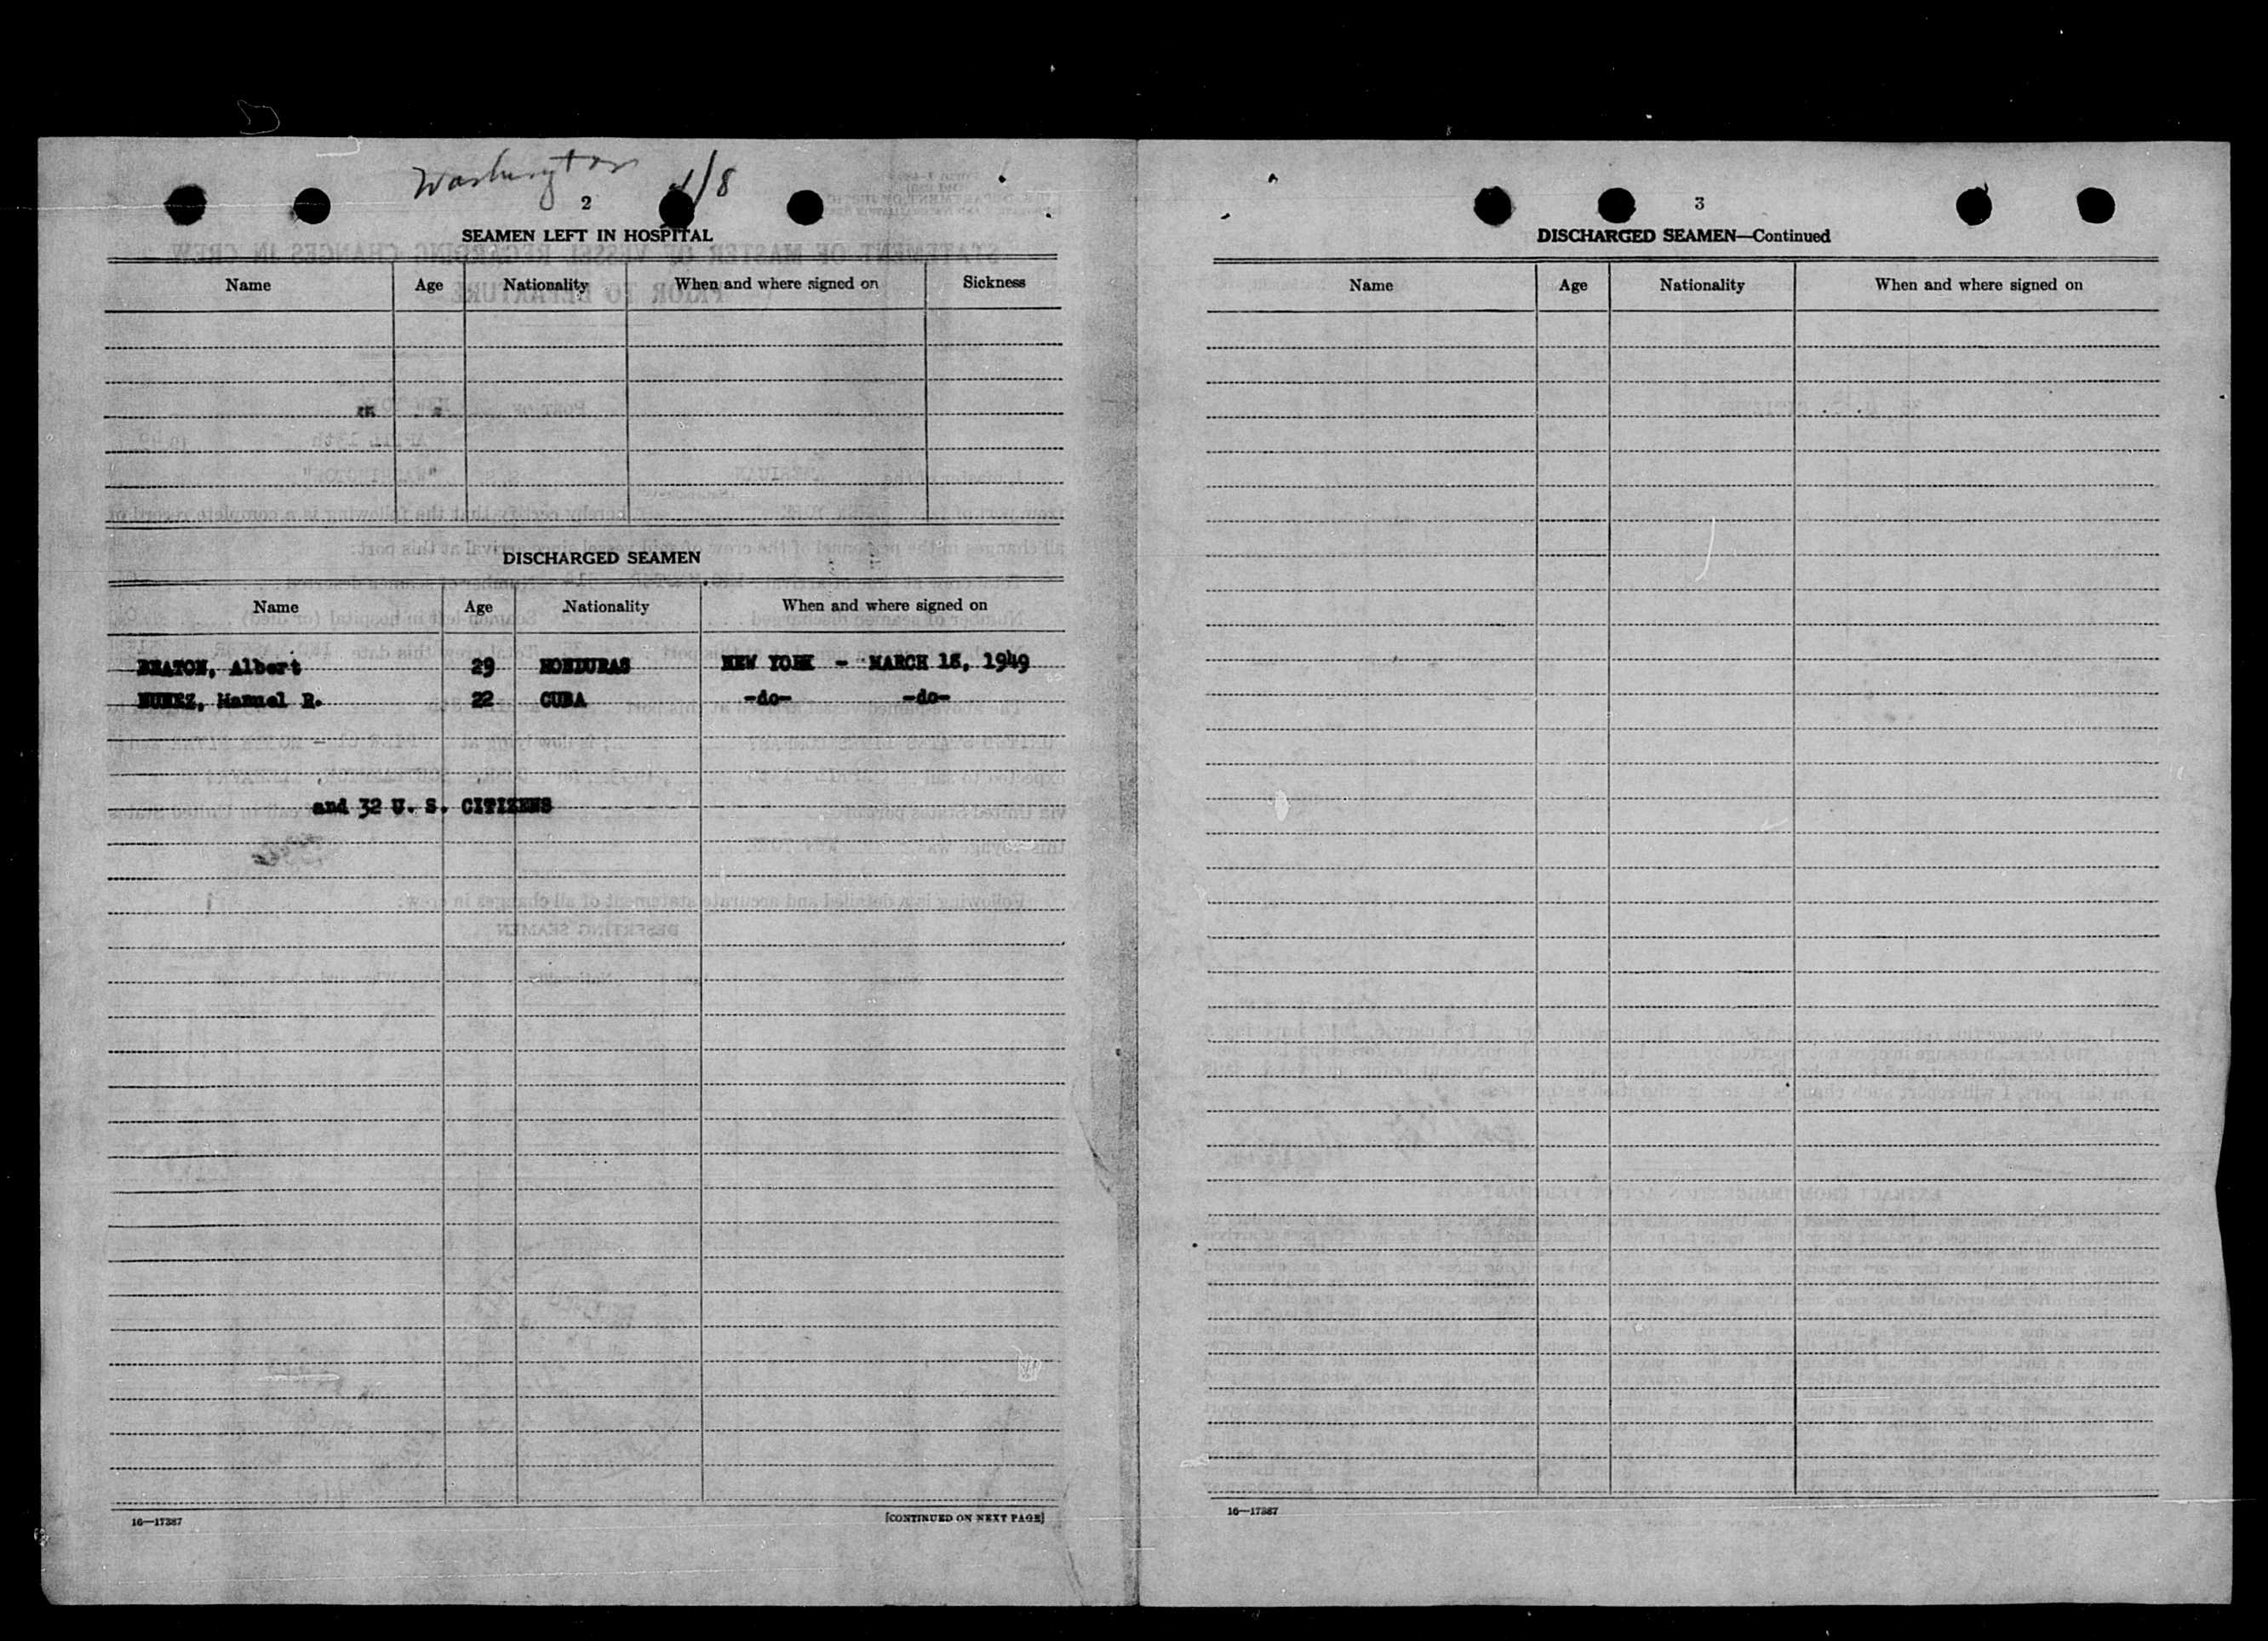 Washington 4/8
2
SEAMEN LEFT IN HOSPITAL
Name Age Nationality When and where signed on Sickness
DISCHARGED SEAMEN
Name Age Nationality When and where signed on
BEATON, Albert 29 HONDURAS NEW YORK - MARCH 18, 1949
NUNEZ, Manuel R. 22 CUBA -do- -do-
and 32 U. S. CITIZENS
16—17387 [CONTINUED ON NEXT PAGE]
3
DISCHARGED SEAMEN—Continued
Name Age Nationality When and where signed on
16—17387